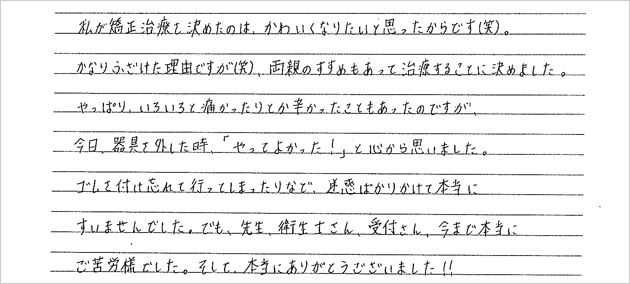 私が矯正治療を決めたのは、かわいくなりたいと思ったからです(笑)。
かなりふざけた理由ですが(笑)、両親のすすめもあって治療することに決めました。
やっぱり、いろいろと痛かったりとか辛かったこともあったのですが、
今日、器具を外した時、「やってよかった!」と心から思いました。
ゴムを付け忘れて行ってしまったりなど、迷惑ばかりかけて本当に
すいませんでした。でも、先生、衛生士さん、受付さん、今まで本当に
ご苦労様でした。そして、本当にありがとうございました!!